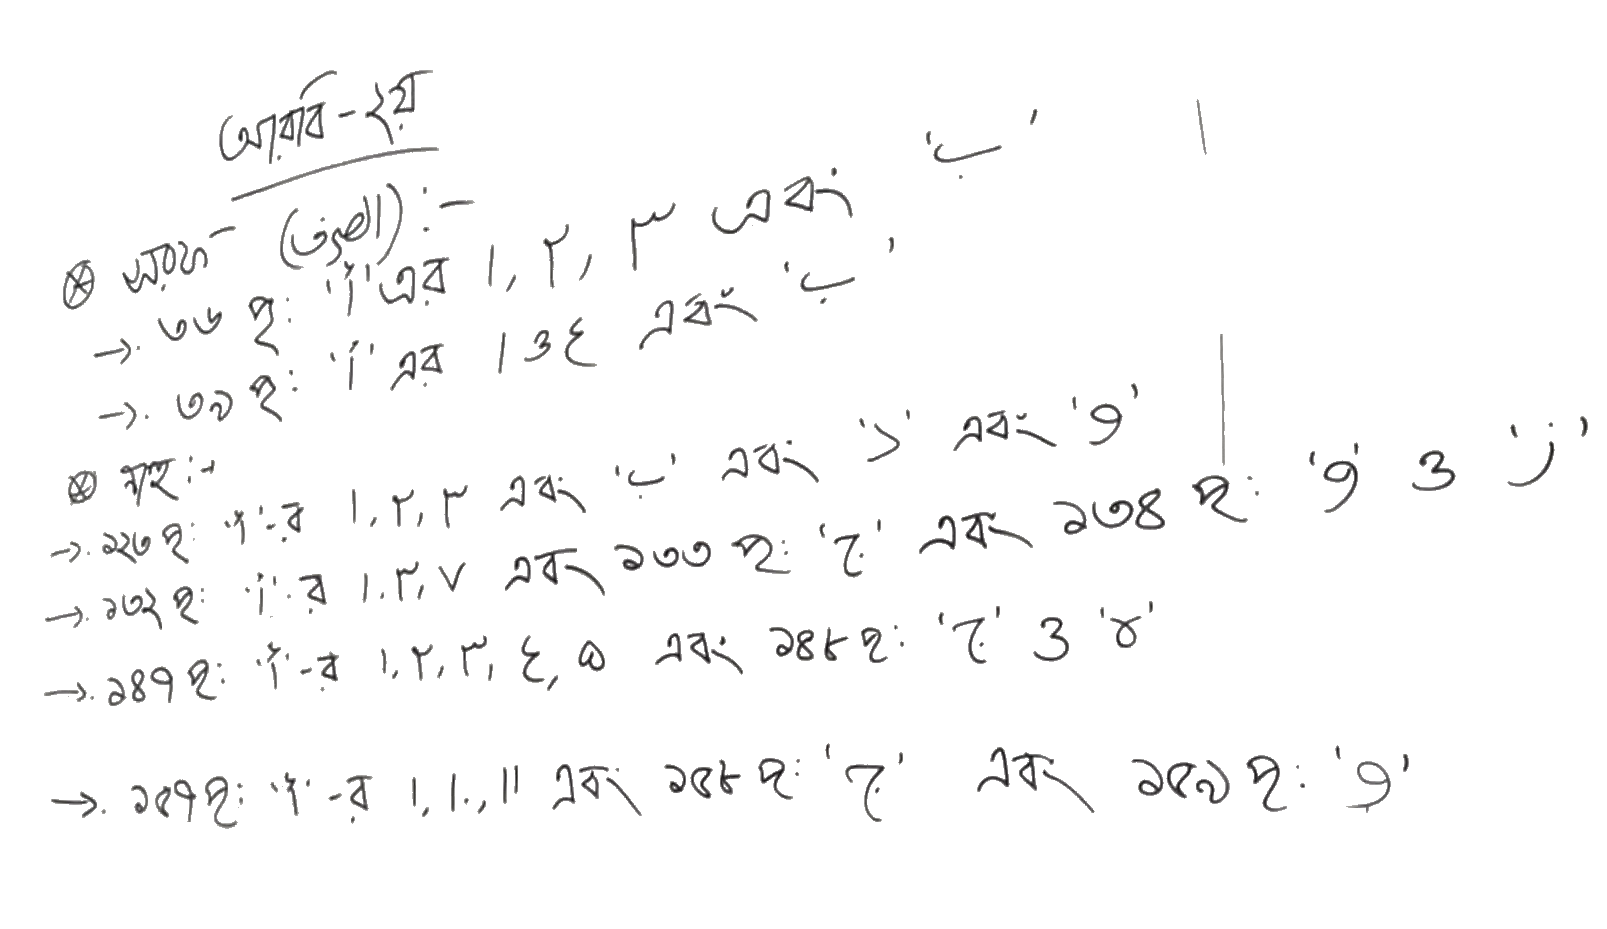 আরবি - ২য়
⊛ সরফ (اللغوي) :-
→ ৩৬ পৃ: 'أ' এর ١, ٢, ٣ এবং 'ب'
→ ৩৯ পৃ: 'أ' এর ١ ও ٤ এবং 'ب'
⊛ নাহু :-
→ ১২৩ পৃ: 'أ'-র ١, ٢, ٣ এবং 'ب' এবং 'د' এবং 'و'
→ ১৩২ পৃ: 'أ'-র ١, ٣, ٧ এবং ১৩৩ পৃ: 'ج' এবং ১৩৪ পৃ: 'و' ও 'ز'
→ ১৪৭ পৃ: 'أ'-র ١, ٢, ٣, ٤, ۵ এবং ১৪৮ পৃ: 'ج' ও 'د'
→ ১৫৭ পৃ: 'أ'-র ١, ١٠, ١١ এবং ১৫৮ পৃ: 'ج' এবং ১৫৯ পৃ: 'و'